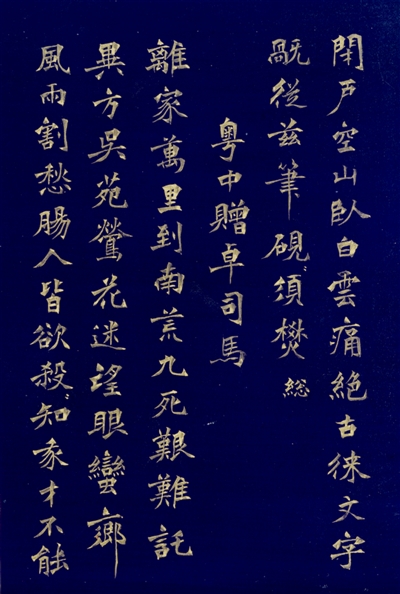 閉戶空山臥白雲痛絕古徠文字
旤從茲筆硯須焚 総
粵中贈卓司馬
離家萬里到南荒九死艱難託
異方吳苑鶯花迷望眼蠻鄉
風雨割愁腸人皆欲殺知才不能